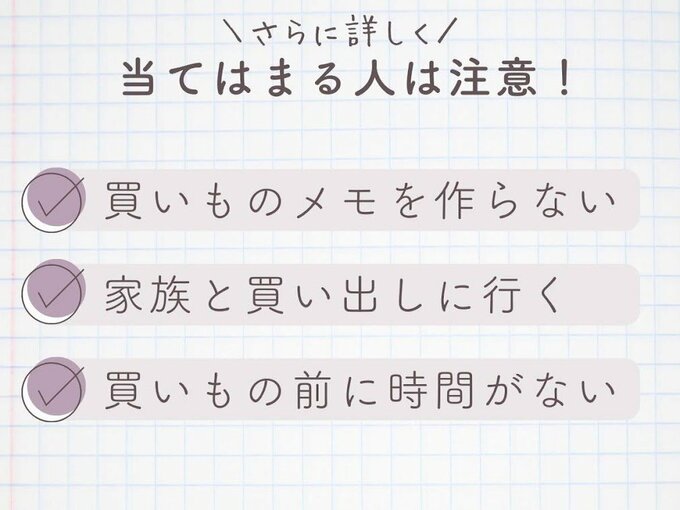 さらに詳しく
当てはまる人は注意！
買いものメモを作らない
家族と買い出しに行く
買いもの前に時間がない